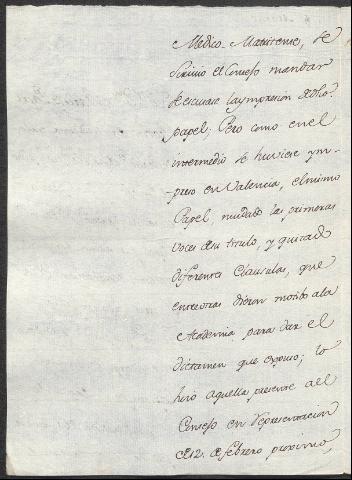 Medico-Matritense, se
sirvió el Consejo mandar
se escusase la ympresion de dho.
papel; Pero como en el
intermedio se huviese ym-
-preso en Valencia, el mismo
Papel, mudado las primeras
voces de su titulo, y quitado
diferentes Clausulas, que
entre otras dieron motibo ala
Academia para dar el
dictamen que expuso; lo
hizo aquella presente al
Consejo en Representacion
de 12. de febrero proximo,